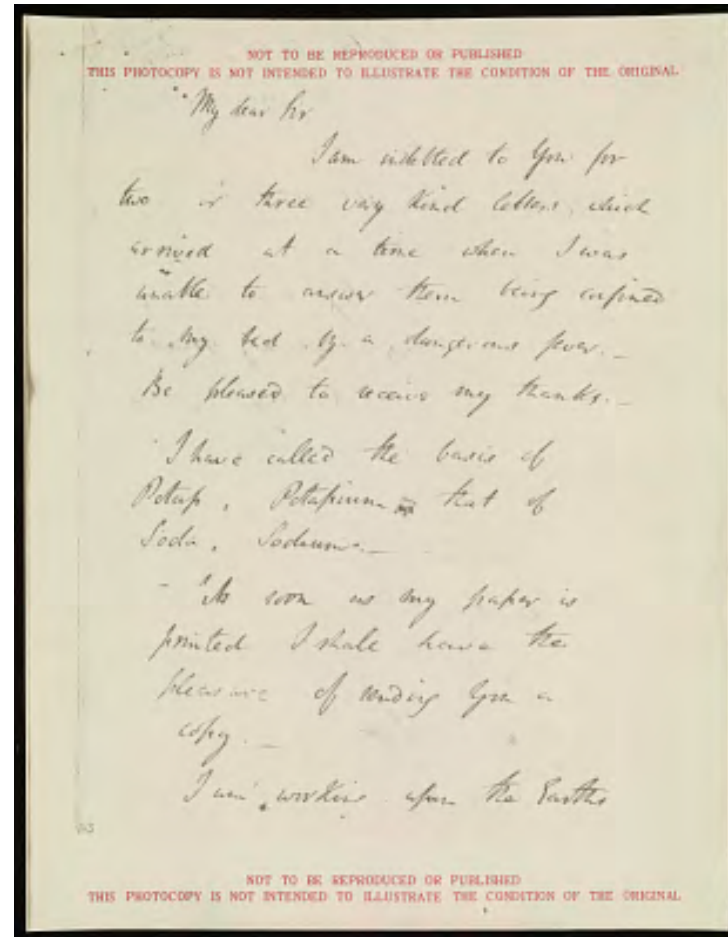 NOT TO BE REPRODUCED OR PUBLISHED
THIS PHOTOCOPY IS NOT INTENDED TO ILLUSTRATE THE CONDITION OF THE ORIGINAL
My dear Sir
I am indebted to You for
two or three very kind letters, which
arrived at a time when I was
unable to answer them being confined
to my bed by a dangerous fever. _
Be pleased to receive my thanks. _
I have called the basis of
Potash, Potasium that of
Soda, Sodium. _
As soon as my paper is
printed I shall have the
pleasure of sending You a
copy. _
I am working upon the Earths
NOT TO BE REPRODUCED OR PUBLISHED
THIS PHOTOCOPY IS NOT INTENDED TO ILLUSTRATE THE CONDITION OF THE ORIGINAL